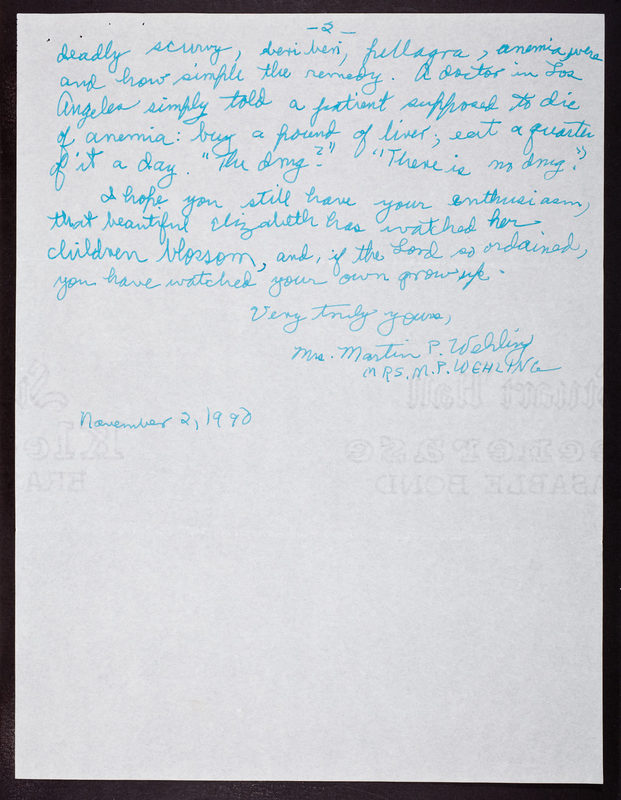 – 2 –
deadly scurvy, beri beri, pellagra, anemia were
and how simple the remedy. A doctor in Los
Angeles simply told a patient supposed to die
of anemia: buy a pound of liver; eat a quarter
of it a day. "The drug?" "There is no drug.")
I hope you still have your enthusiasm,
that beautiful Elizabeth has watched her
children blossom, and, if the Lord so ordained,
you have watched your own grow up.
Very truly yours,
Mrs. Martin P. Wehling
MRS. M. P. WEHLING
November 2, 1990